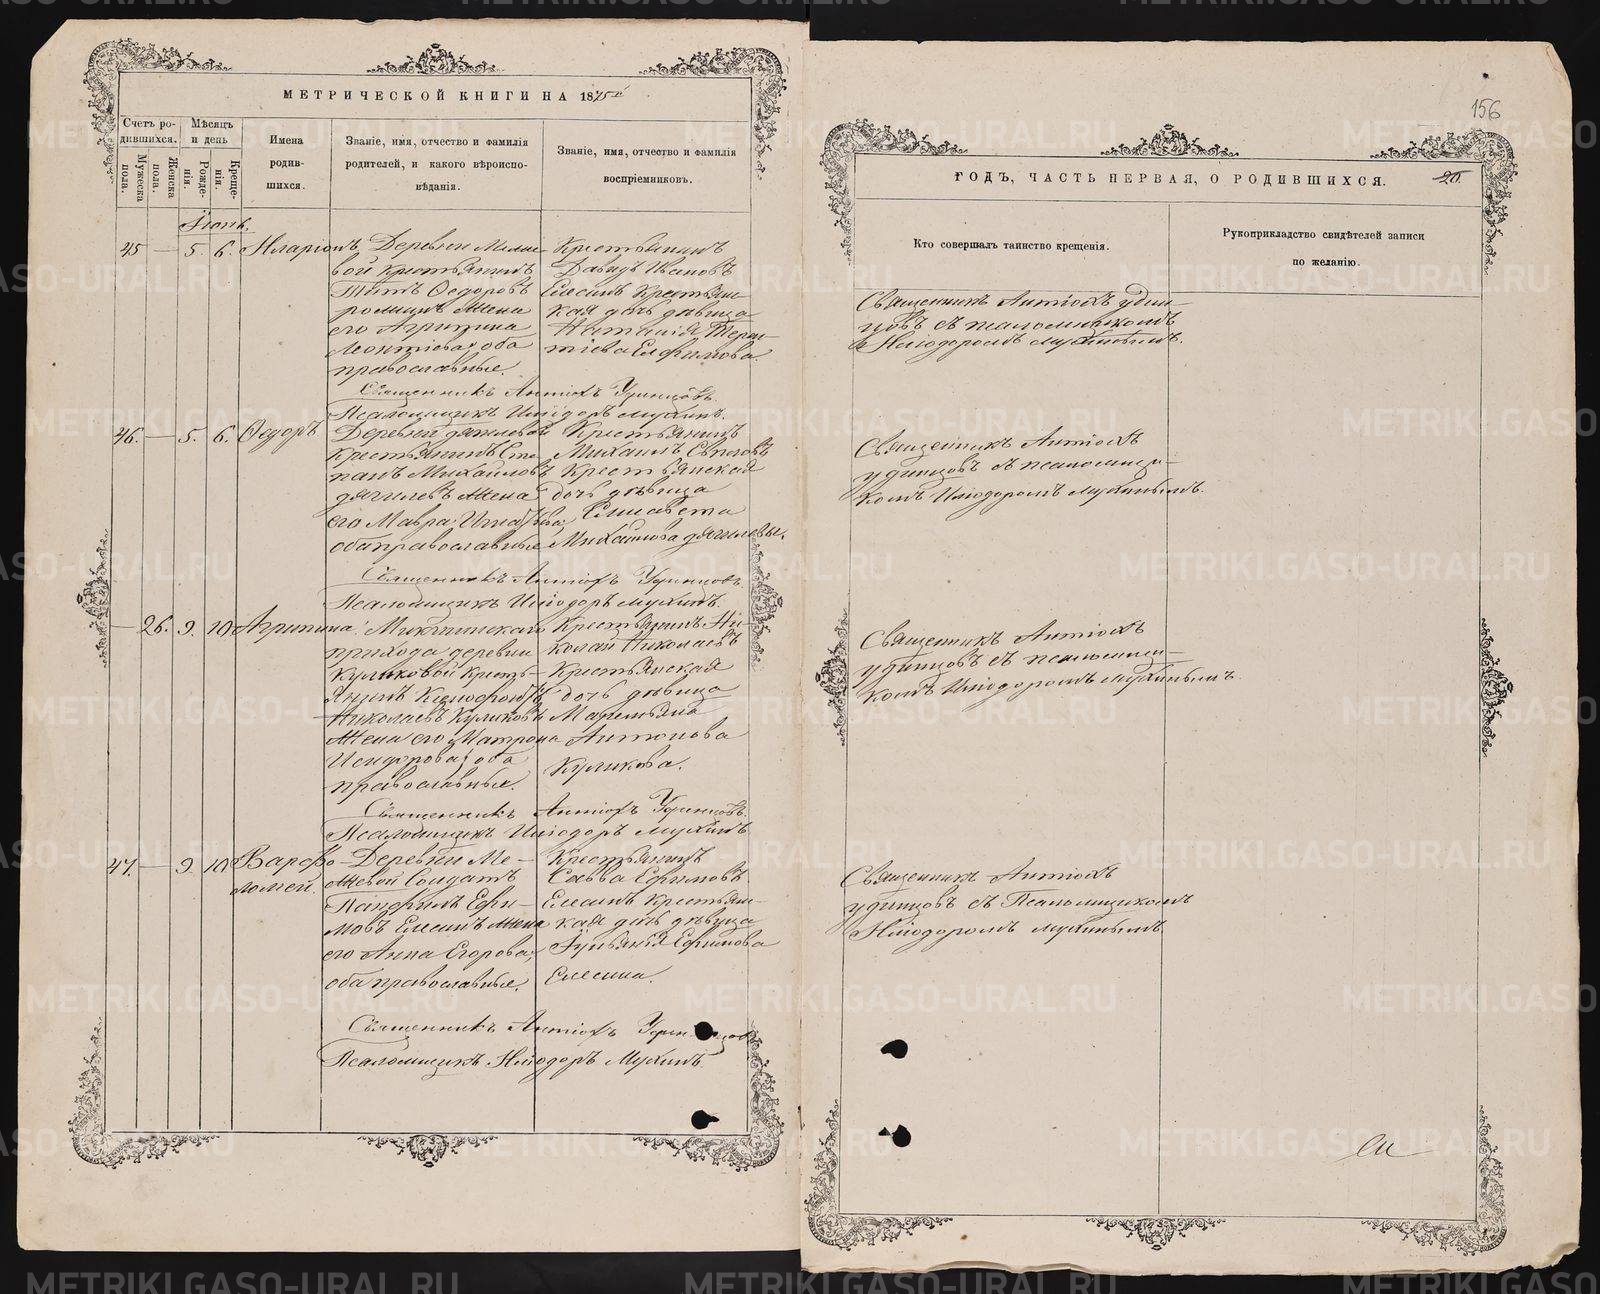 МЕТРИЧЕСКОЙ КНИГИ НА 1875й
Счетъ ро-
дившихся.
Мужеска
пола.
Женска
пола.
Мѣсяцъ
и день
Рожде-
нія.
Креще-
нія.
Имена
родив-
шихся.
Званіе, имя, отчество и фамилія
родителей, и какого вѣроиспо-
вѣданія.
Званіе, имя, отчество и фамилія
воспріемниковъ.
Іюнь.
45 — 5. 6. Иларіонъ
Деревни
вой крестьянинъ
Титъ Ѳедоровъ
жена
его Агрипина
Леонтіева; оба
православные.
Крестьянинъ
Давидъ Ивановъ
Елесинъ крестьян-
кая дочь дѣвица
Наталія Терен-
тіева Елфимова.
Священникъ Антіохъ Удинцовъ.
Псаломщикъ Иліодоръ Мухинъ.
46. — 5. 6. Ѳедоръ
Деревни Дягилевой
крестьянинъ Сте-
панъ Михайловъ
Дягилевъ жена
его Мавра
оба православные
Крестьянинъ
Михаилъ
крестьянская
дочь дѣвица
Елисавета
Михайлова Дягилевы.
Священникъ Антіохъ Удинцовъ
Псаломщикъ Иліодоръ Мухинъ.
— 26. 9. 10 Агрипина.
прихода деревни
Куликовой кресть-
янинъ Ксенофонтъ
Николаевъ Куликовъ
жена его Матрона
Исидорова; оба
православные.
Крестьянинъ Ни-
колай Николаевъ
крестьянская
дочь дѣвица
Антонова
Куликова.
Священникъ Антіохъ Удинцовъ.
Псаломщикъ Иліодоръ Мухинъ
47. — 9. 10. Варфо-
ломей.
Деревни Ме-
жевой солдатъ
Панфилъ Ефи-
мовъ Елесинъ жена
его Анна Егорова;
оба православные.
Крестьянинъ
Савва Ефимовъ
Елесинъ крестьян-
кая дочь дѣвица
Ефимова
Елесина.
Священникъ Антіохъ Удинцовъ
Псаломщикъ Иліодоръ Мухинъ.
156
ГОДЪ, ЧАСТЬ ПЕРВАЯ, О РОДИВШИХСЯ.
26.
Кто совершалъ таинство крещенія.
Рукоприкладство свидѣтелей записи
по желанію.
Священникъ Антіохъ Удин-
цовъ съ псаломщикомъ
Иліодоромъ Мухинымъ.
Священникъ Антіохъ
Удинцовъ съ псаломщи-
комъ Иліодоромъ Мухинымъ.
Священникъ Антіохъ
Удинцовъ съ псаломщи-
комъ Иліодоромъ Мухинымъ.
Священникъ Антіохъ
Удинцовъ съ Псаломщикомъ
Иліодоромъ Мухинымъ
METRIKI.GASO-URAL.RU